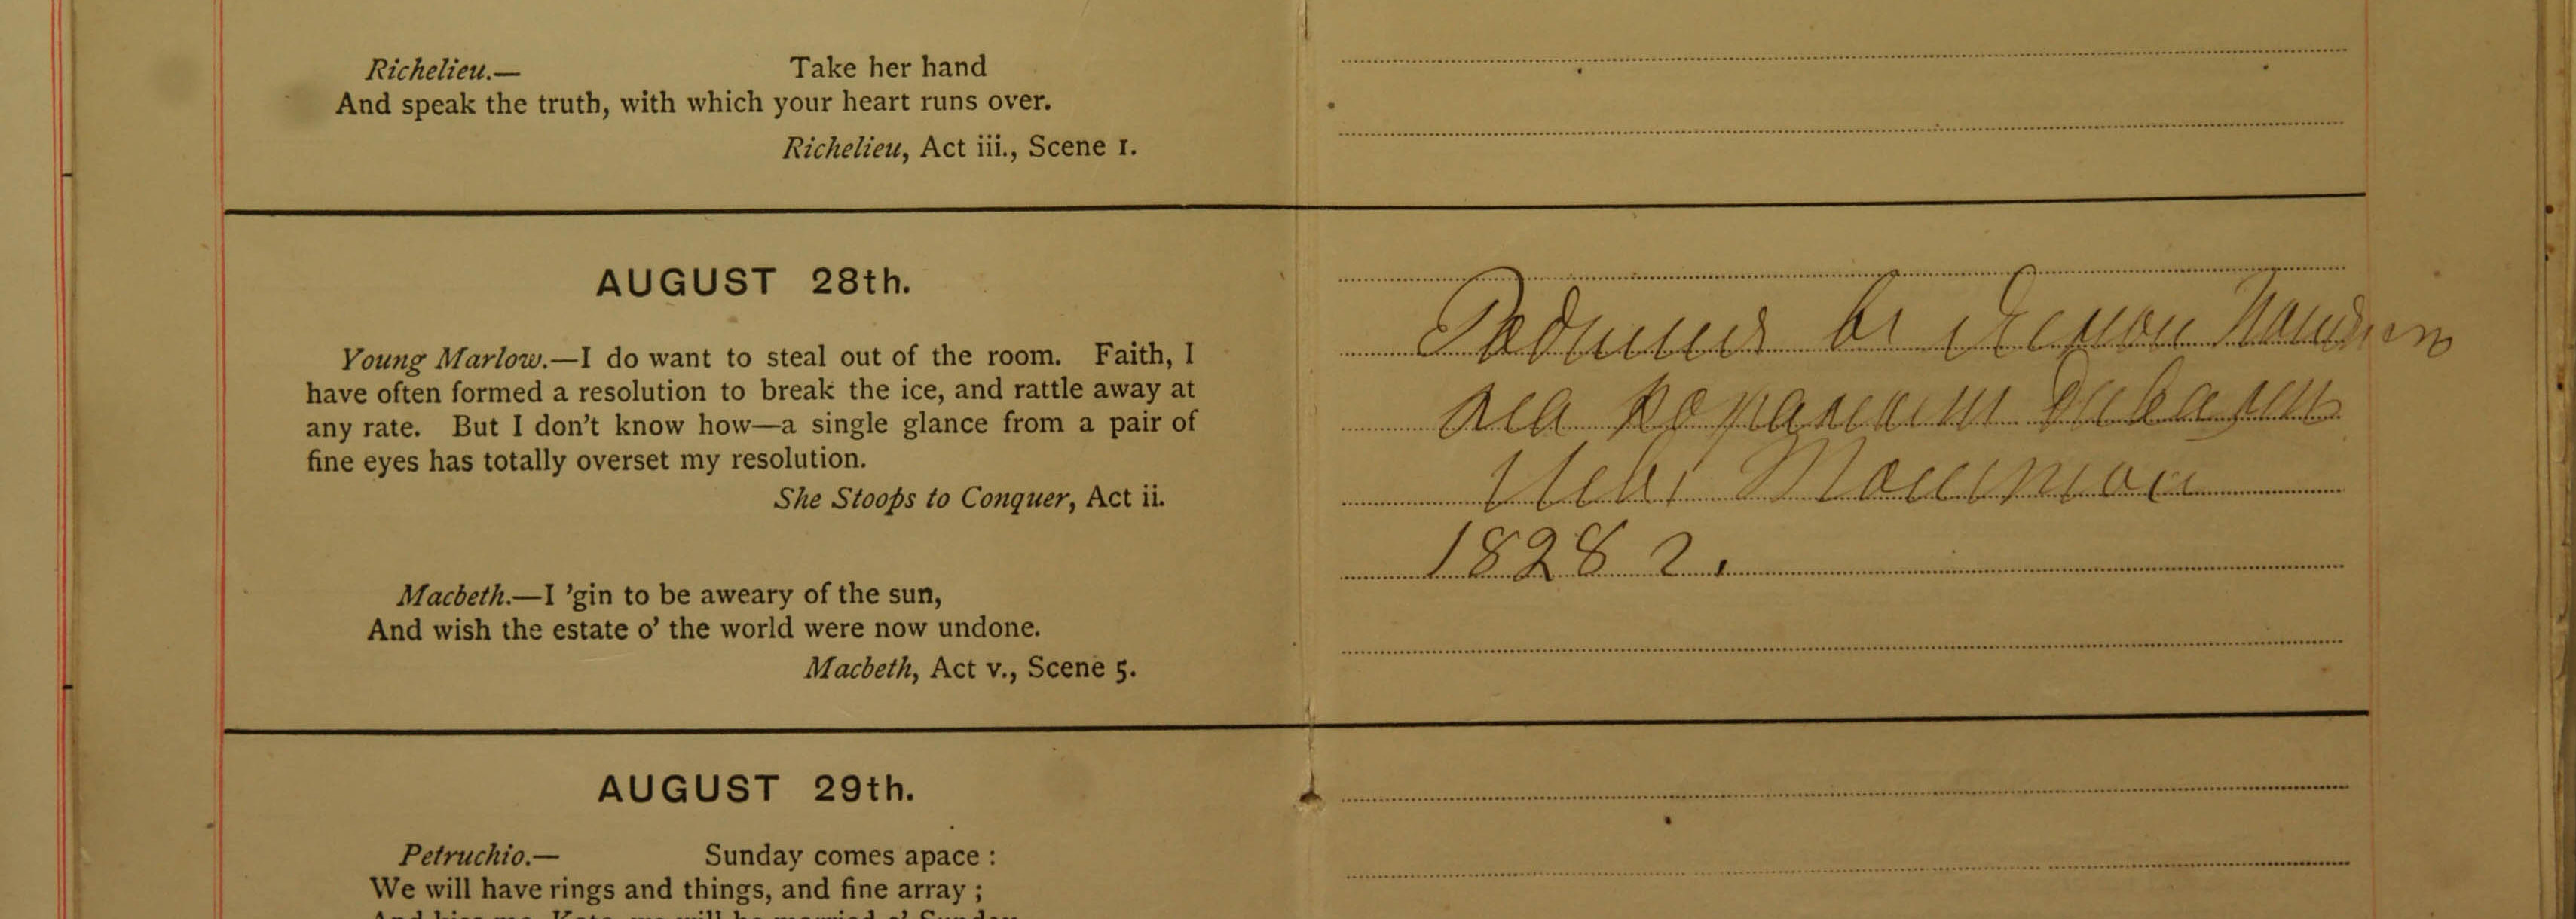 Richelieu.— Take her hand
And speak the truth, with which your heart runs over.
Richelieu, Act iii., Scene 1.
AUGUST 28th.
Young Marlow.—I do want to steal out of the room. Faith, I
have often formed a resolution to break the ice, and rattle away at
any rate. But I don't know how—a single glance from a pair of
fine eyes has totally overset my resolution.
She Stoops to Conquer, Act ii.
Macbeth.—I 'gin to be aweary of the sun,
And wish the estate o' the world were now undone.
Macbeth, Act v., Scene 5.
AUGUST 29th.
Petruchio.— Sunday comes apace :
We will have rings and things, and fine array ;
And kiss me, Kate, we will be married o' Sunday
Родился въ Ясной
на
Толстой
1828 г.